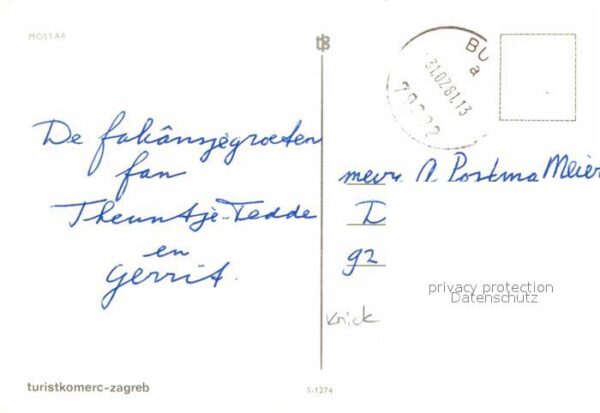 MOSTAR
BU
a
31.07.81.13
De fakânsjegroeten
fan
Theuntsje-Tedde
en
Gerrit.
mevr. Postma Meier
D
92
privacy protection
Datenschutz
Knick
turistkomerc-zagreb
S-1274